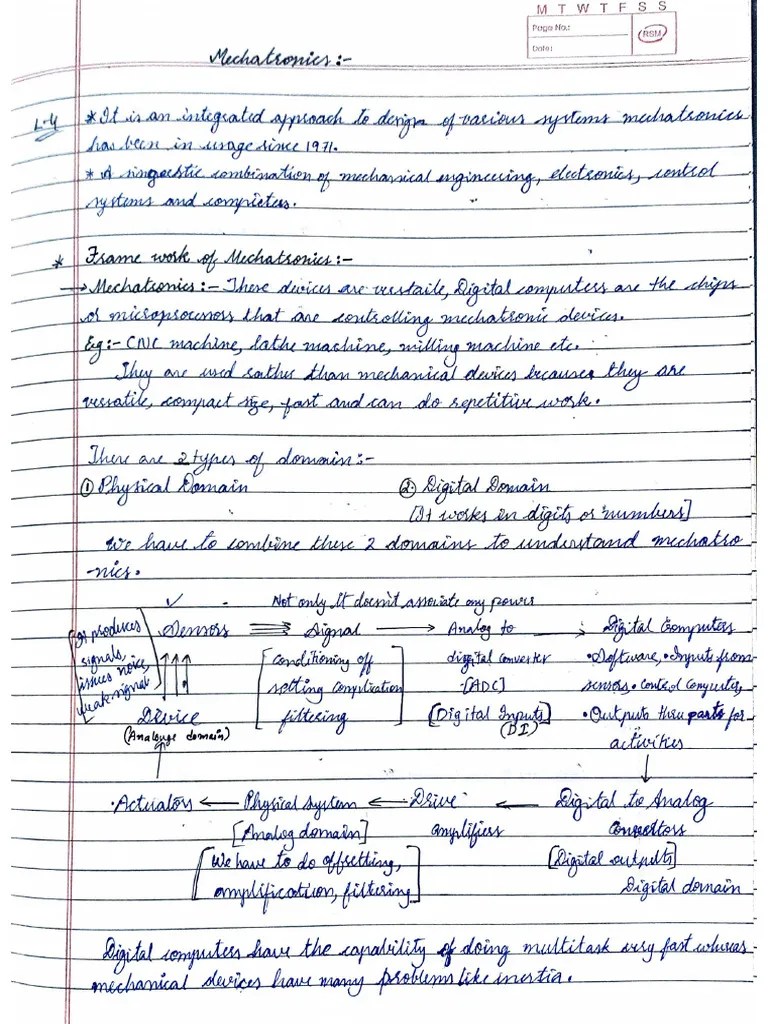 M T W T F S S
Page No.:
Date:
RSM
Mechatronics:-
L-4
* It is an integrated approach to design of various systems mechatronics
has been in usage since 1971.
* A singestic combination of mechanical engineering, electronics, control
systems and computers.
* Frame work of Mechatronics:-
→ Mechatronics:- These devices are verstaile, Digital computers are the chips
or microprocessors that are controlling mechatronic devices.
Eg:- CNC machine, lathe machine, milling machine etc.
They are used rather than mechanical devices because they are
versatile, compact size, fast and can do repetitive work.
There are 2 types of domain:-
① Physical Domain ② Digital Domain
[It works in digits or numbers]
We have to combine these 2 domains to understand mechatro
-nics.
Not only It doesn't associate any power
Sensors → Signal → Analog to → Digital Computers
[It produces
signals,
issues noise,
weak signal]
[conditioning off
setting complication
filtering]
digital converter
-[ADC]
[Digital Inputs]
(DI)
• Software, • Inputs from
sensors • control computer,
• Outputs thru parts for
activities
Device
(Analouge domain)
• Actuators ← Physical system ← Drive ← Digital to Analog
[Analog domain] amplifiers convertors
[We have to do offsetting,
amplification, filtering]
[Digital outputs]
Digital domain
Digital computers have the capability of doing multitask very fast whereas
mechanical devices have many problems like inertia.